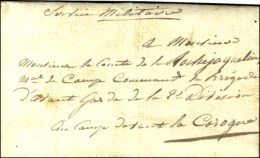 Service Militaire
A Monsieur
Monsieur le Comte de la Rochejaquelein
de Camp Command. la Brigade
de la Division
Au Camp devant la Corogne